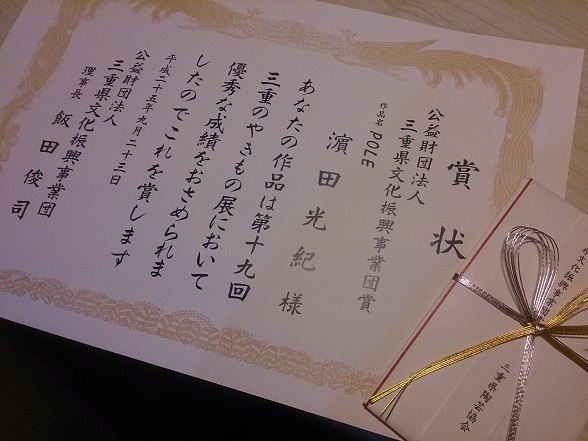 賞状
公益財団法人
三重県文化振興事業団賞
作品名 POLE
濱田光紀様
あなたの作品は第十九回
三重のやきもの展において
優秀な成績をおさめられま
したのでこれを賞します
平成二十五年九月二十三日
公益財団法人
三重県文化振興事業団
理事長 飯田俊司
文化振興事業団
三重県陶芸協会